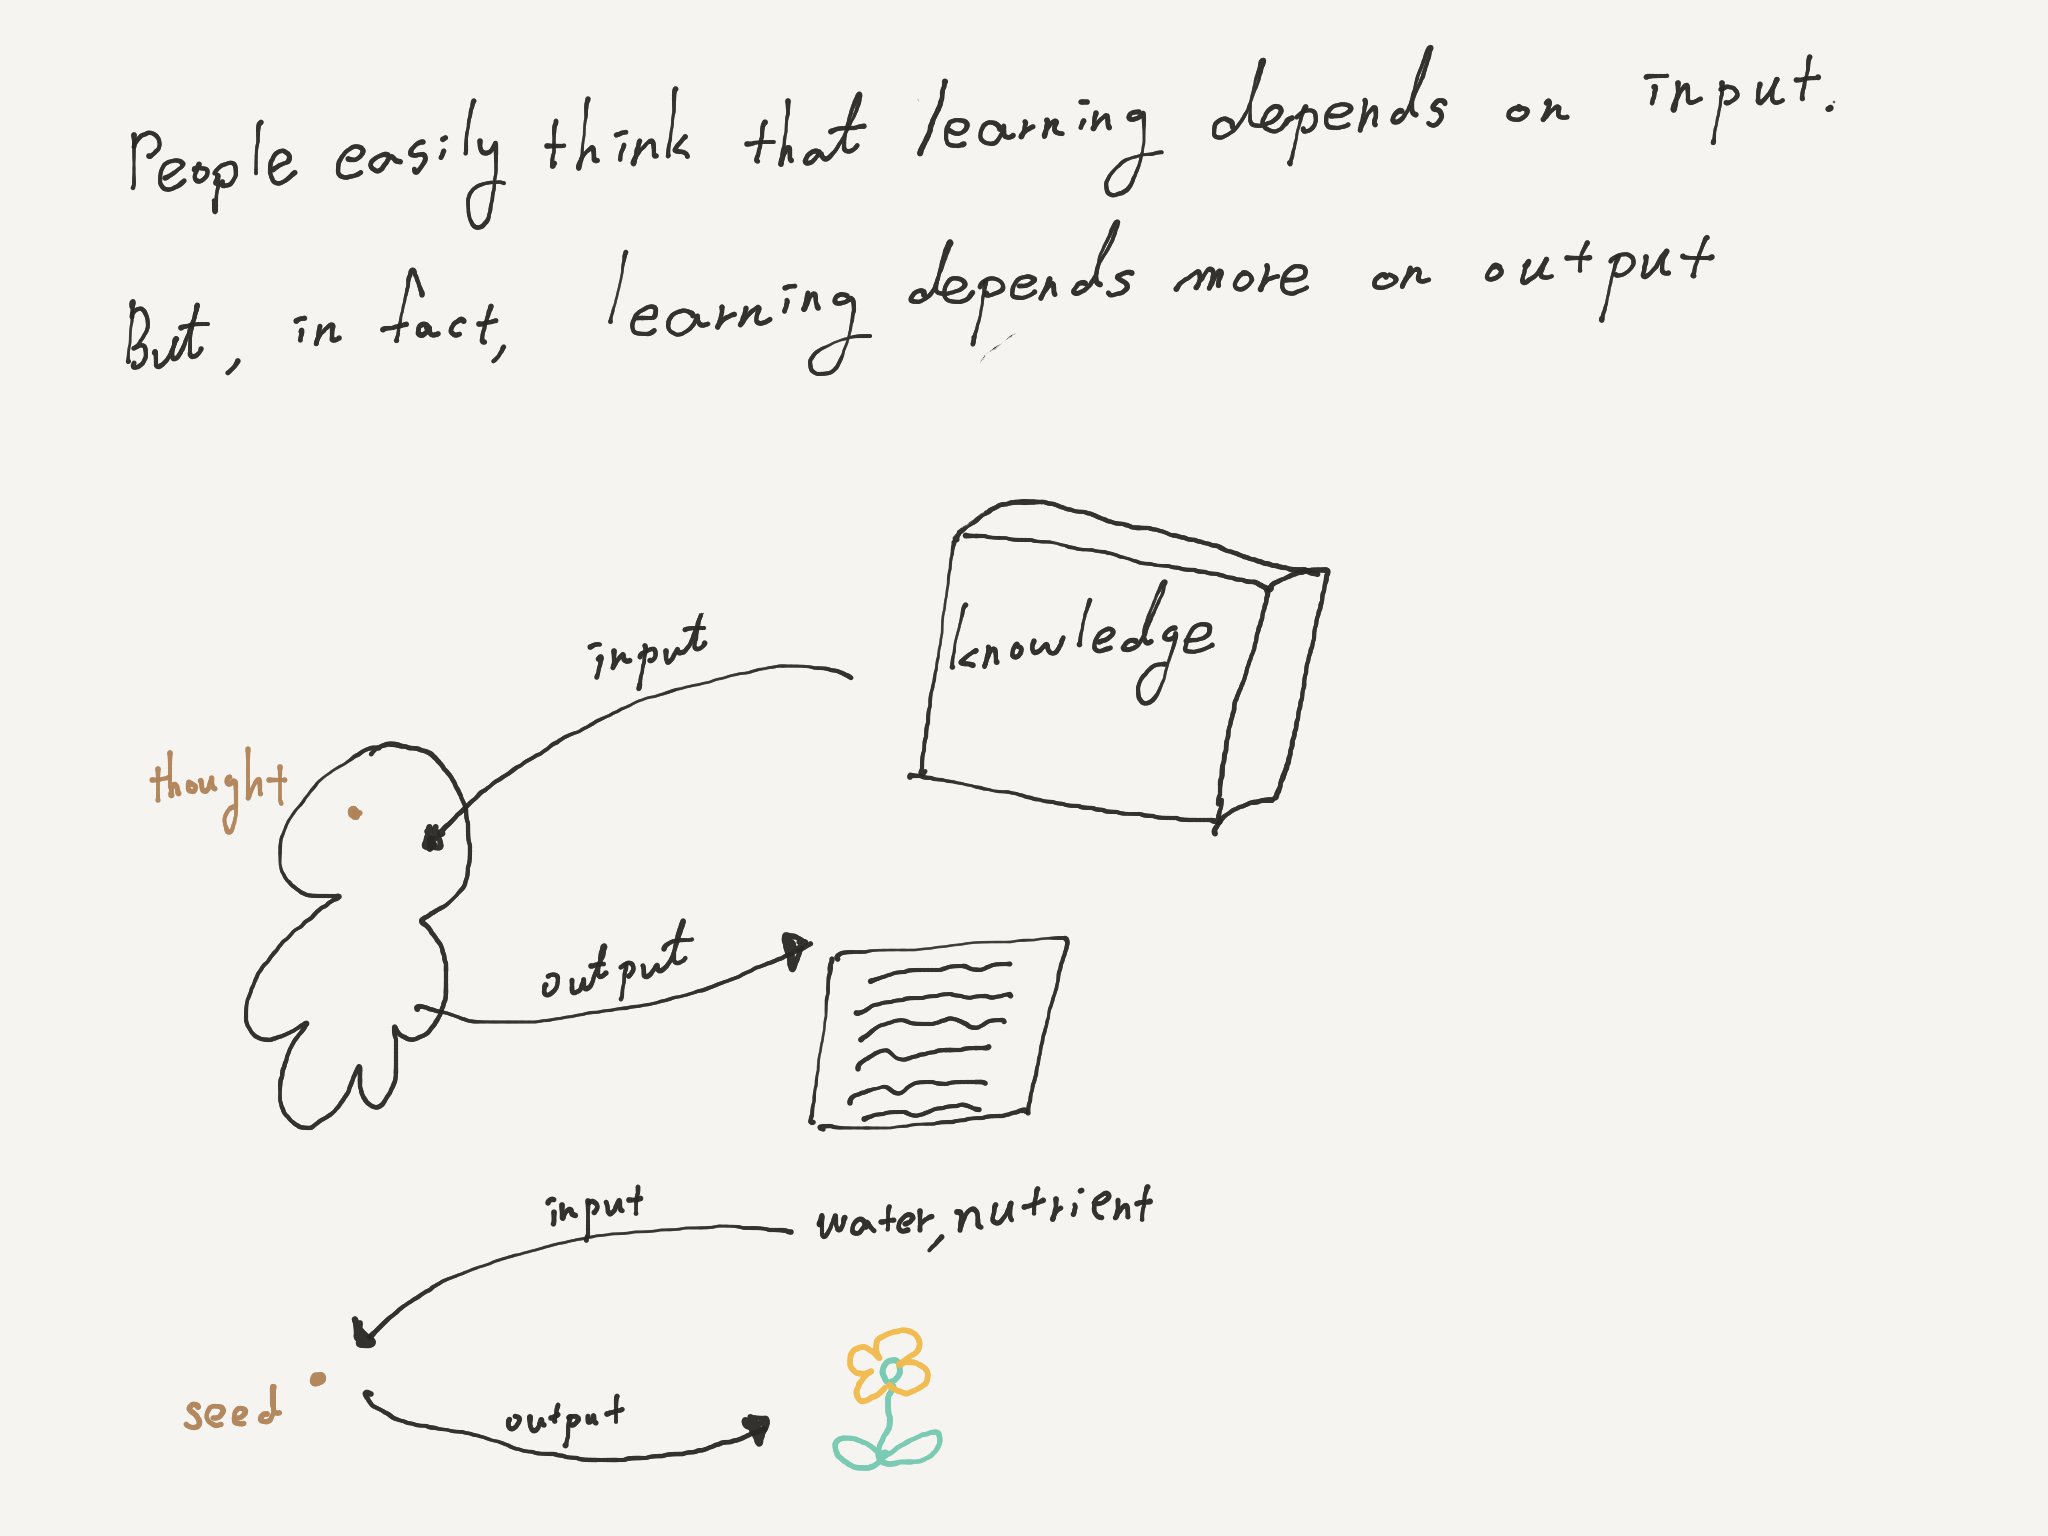 People easily think that learning depends on input.
But, in fact, learning depends more on output
knowledge
input
thought
output
input
water, nutrient
seed
output